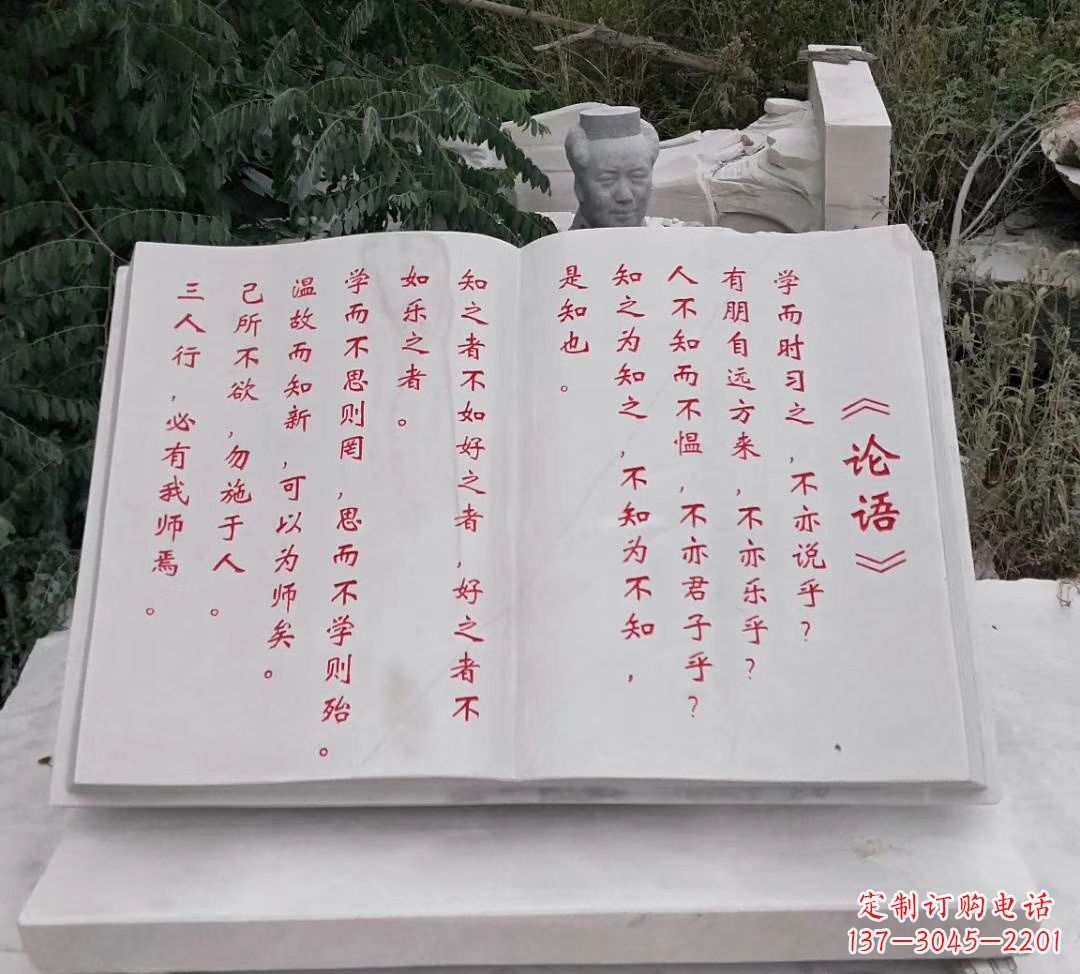 《论语》
学而时习之，不亦说乎？
有朋自远方来，不亦乐乎？
人不知而不愠，不亦君子乎？
知之为知之，不知为不知，
是知也。
知之者不如好之者，好之者不
如乐之者。
学而不思则罔，思而不学则殆。
温故而知新，可以为师矣。
己所不欲，勿施于人。
三人行，必有我师焉。
定制订购电话
137-3045-2201